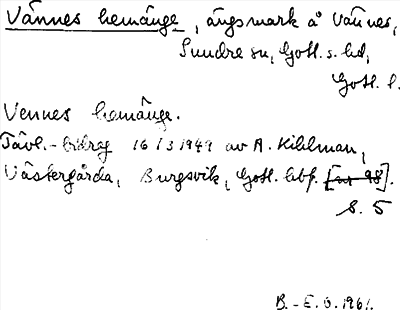 Vännes hemänge, ängsmark å Vännes,
Sundre sn, Gotl. s. hd,
Gotl. l.
Vennes hemänge.
Tävl.-bidrag 16/3 1949 av A. Kihlman,
Västergårda, Burgsvik, Gotl. lbf. [nr 98].
S. 5
B.-E. O. 1961.